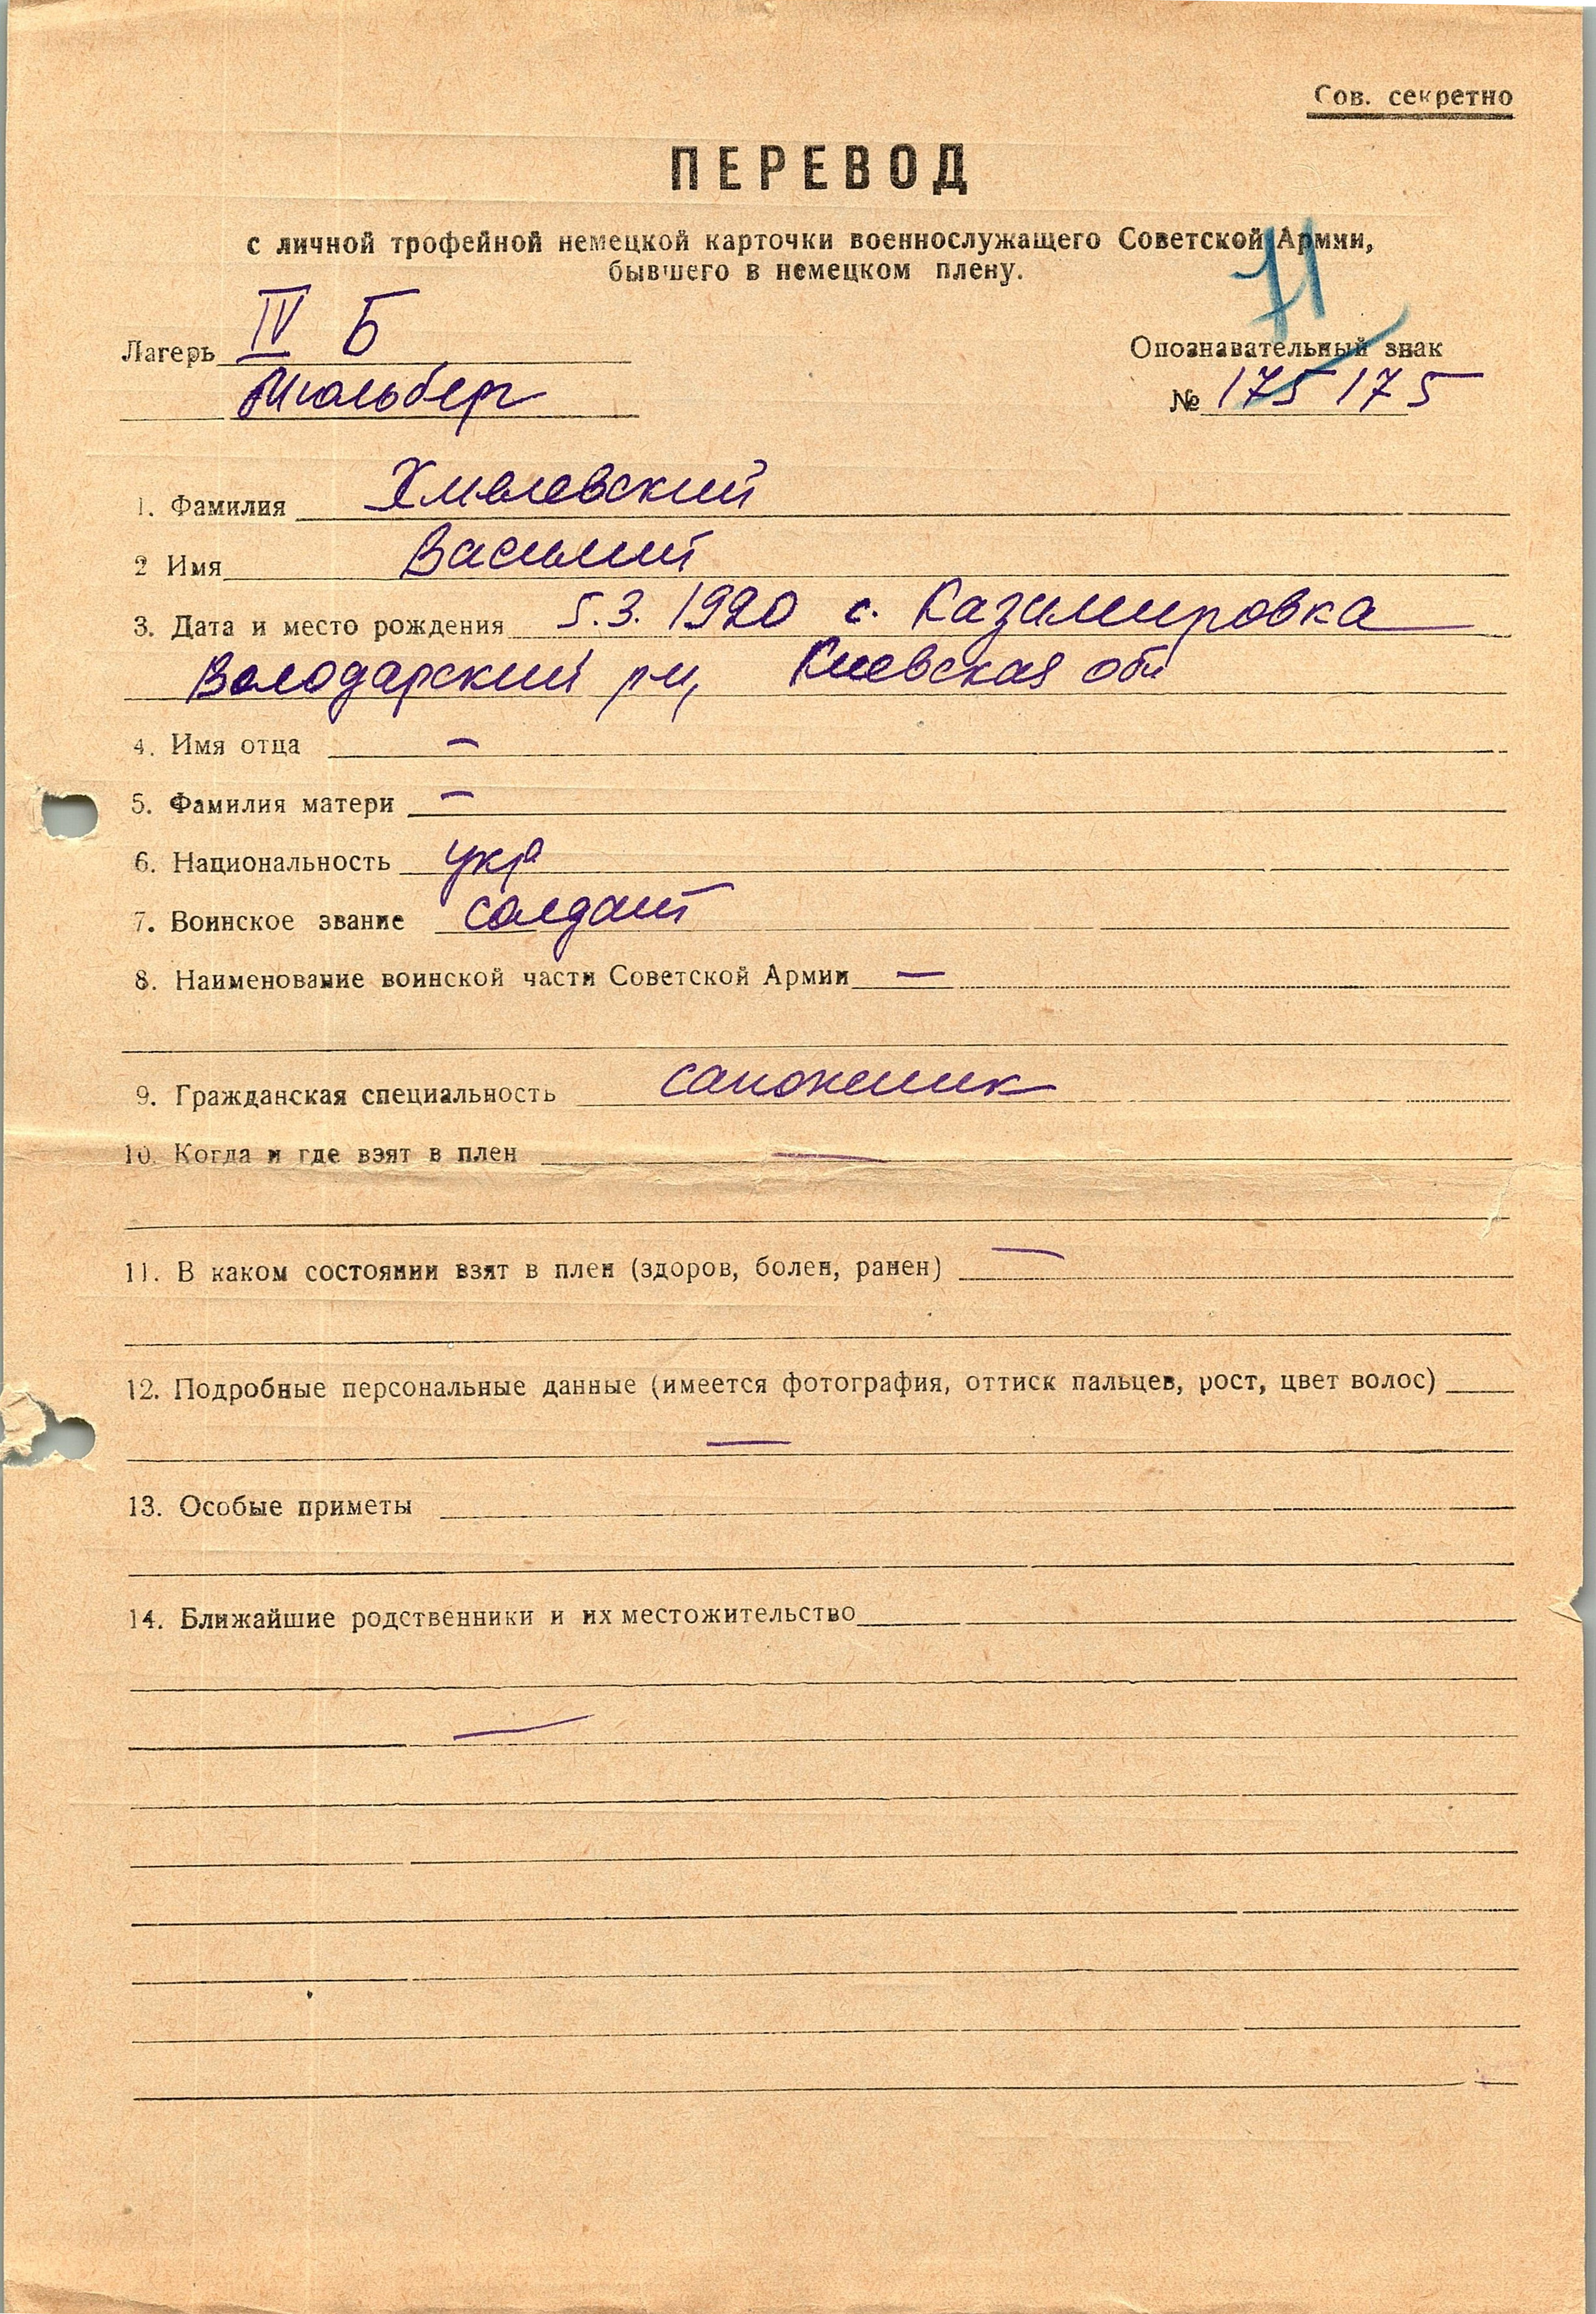 Сов. секретно
ПЕРЕВОД
с личной трофейной немецкой карточки военнослужащего Советской Армии,
бывшего в немецком плену.
71
Лагерь IV Б
Мюльберг
Опознавательный знак
№ 175175
1. Фамилия Хмелевский
2 Имя Василий
3. Дата и место рождения 5.3.1920 с. Казимировка
Володарский рн, Киевская обл
4. Имя отца —
5. Фамилия матери —
6. Национальность укр
7. Воинское звание солдат
8. Наименование воинской части Советской Армии —
9. Гражданская специальность сапожник
10. Когда и где взят в плен —
11. В каком состоянии взят в плен (здоров, болен, ранен) —
12. Подробные персональные данные (имеется фотография, оттиск пальцев, рост, цвет волос)
—
13. Особые приметы
14. Ближайшие родственники и их местожительство
—